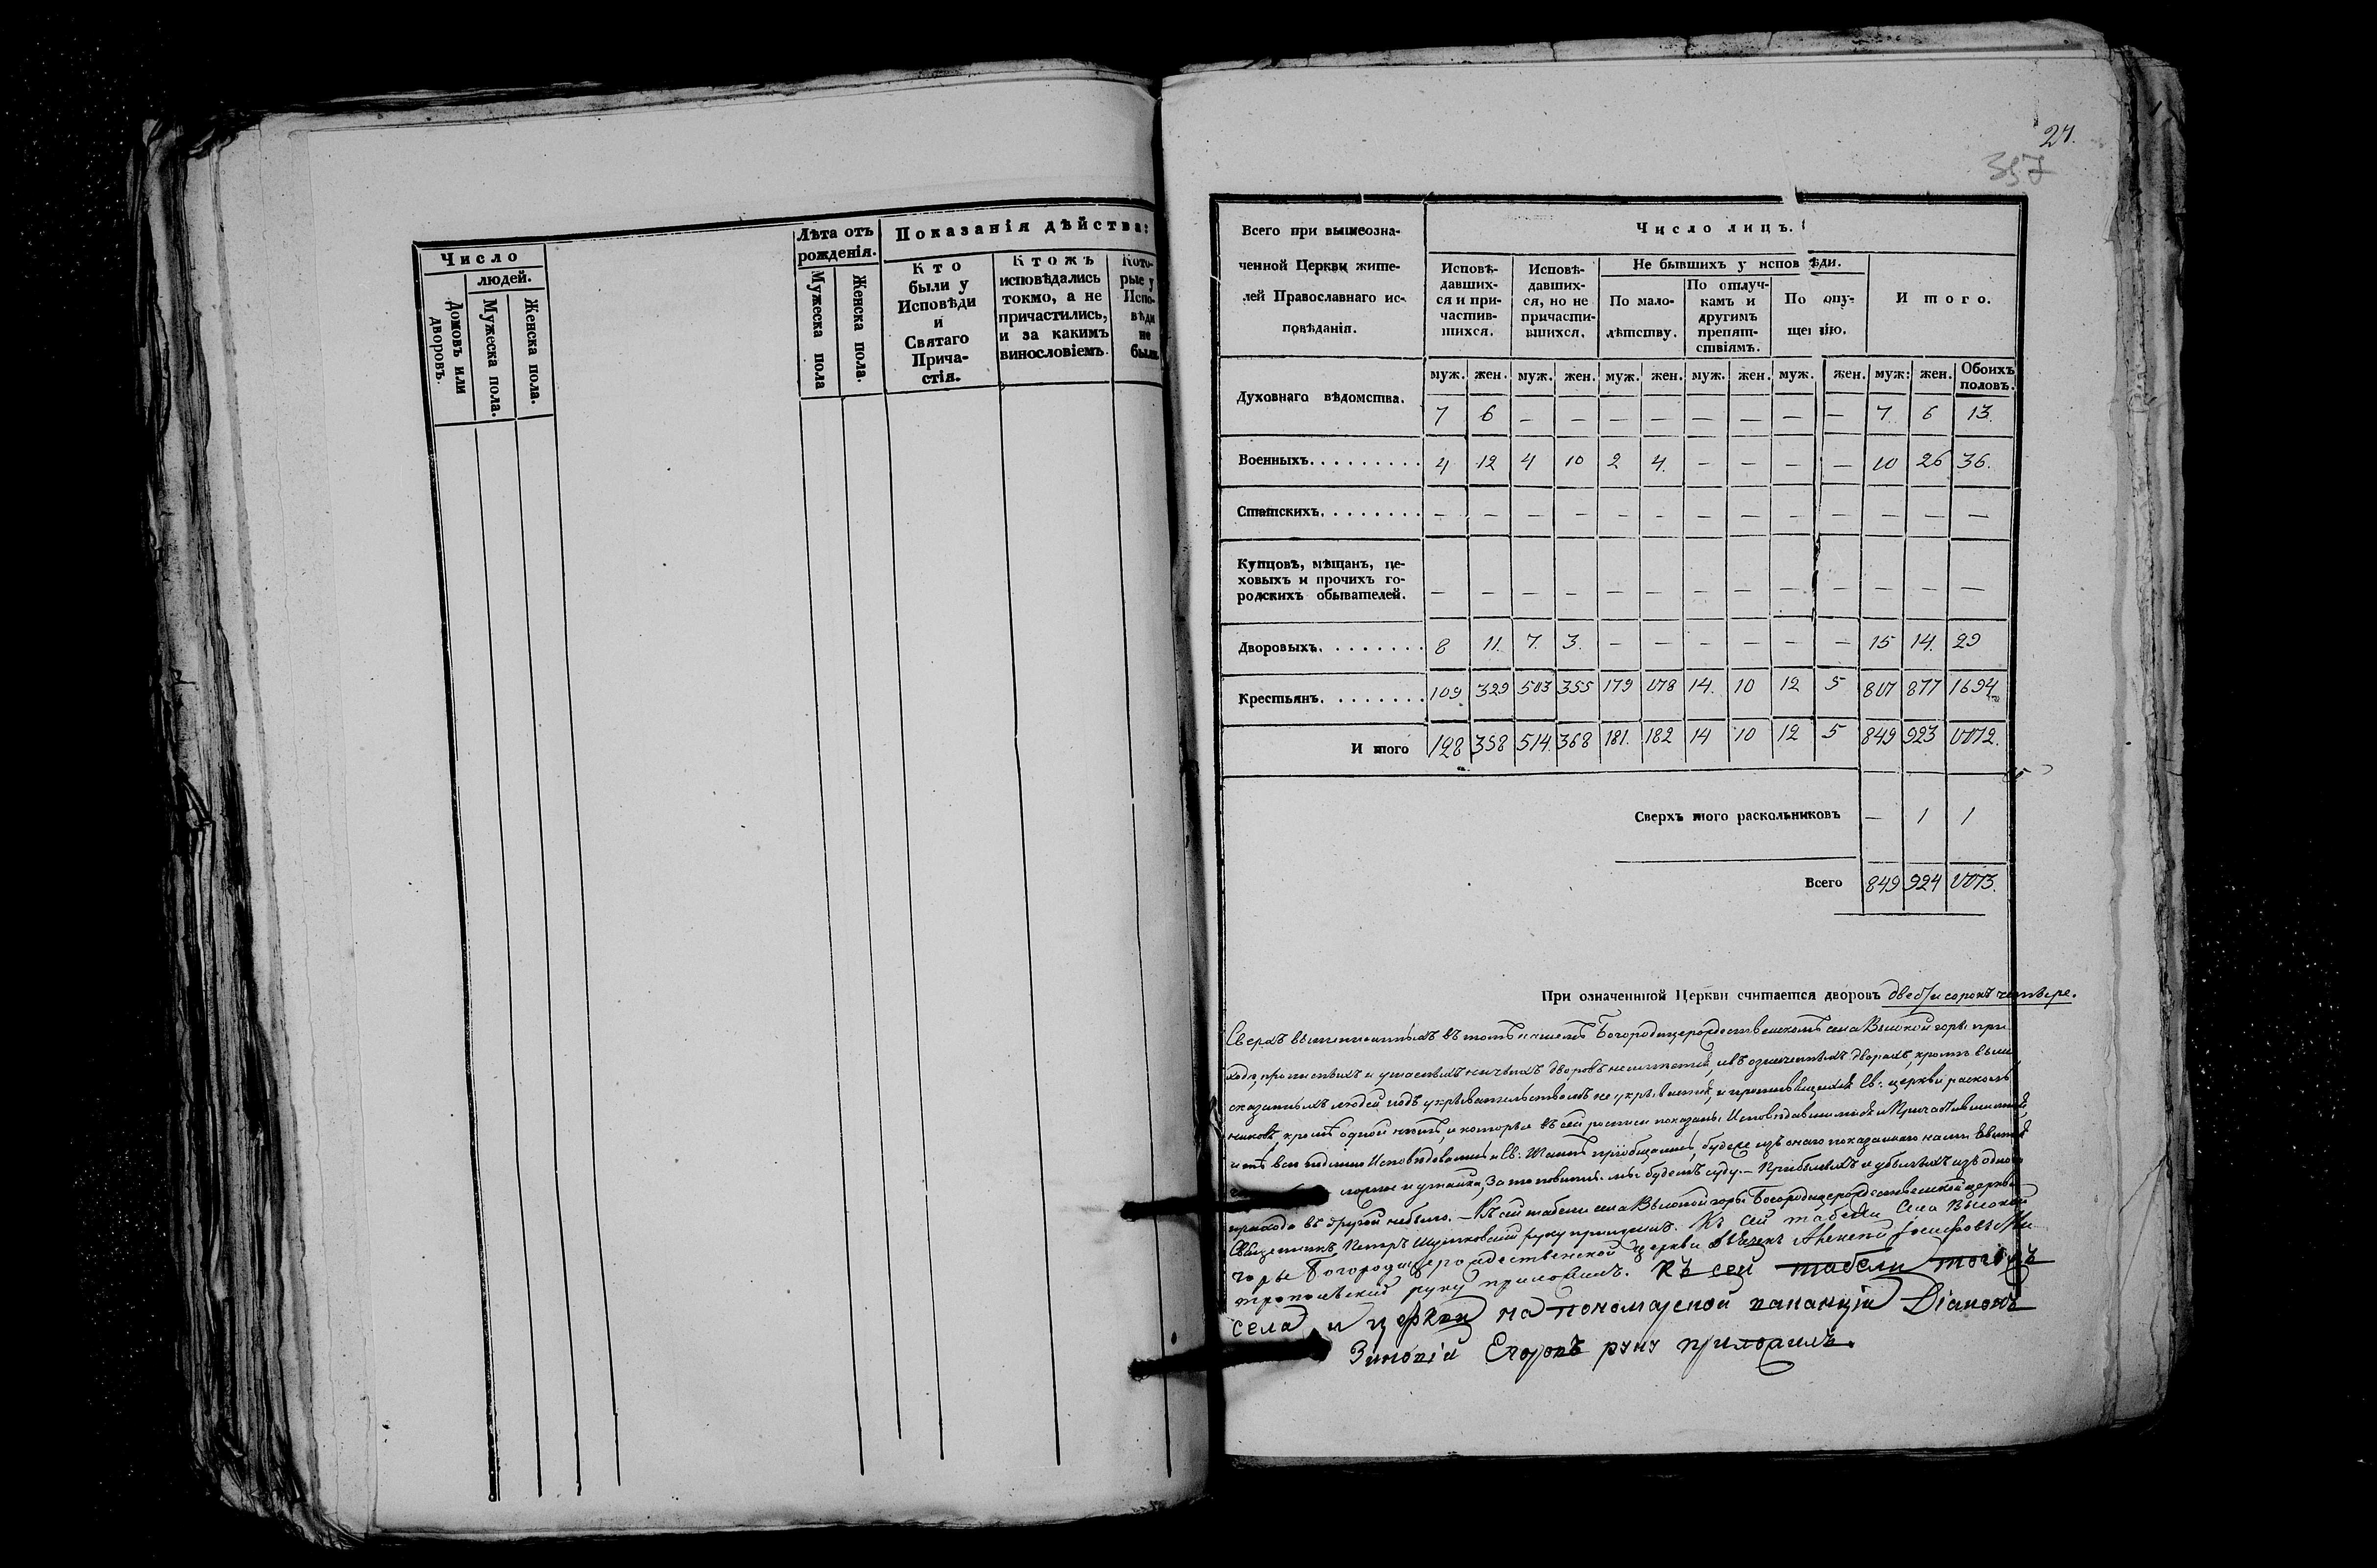 Число
людей.
Домовъ или дворовъ.
Мужеска пола.
Женска пола.
Лѣта отъ рожденія.
Мужеска пола
Женска пола.
Показанія дѣйства:
Кто
были у
Исповѣди
и
Святаго
Прича-
стія.
Ктожъ
исповѣдались
токмо, а не
причастились,
и за какимъ
винословіемъ.
Кото-
рые у
Испо-
вѣди
не
были.
27.
357
Всего при вышеозна-
ченной Церкви жите-
лей Православнаго ис-
повѣданія.
Число лицъ.
Исповѣ-
давших-
ся и при-
частив-
шихся.
Исповѣ-
давших-
ся, но не
причасти-
вшихся.
Не бывшихъ у исповѣди.
По мало-
лѣтству.
По отлуч-
камъ и
другимъ
препят-
ствіямъ.
По опу-
щенію.
Итого.
муж. жен. муж. жен. муж. жен. муж. жен. муж. жен. муж: жен. Обоихъ половъ.
Духовнаго вѣдомства. 7 6 — — — — — — — — 7 6 13.
Военныхъ. 4 12 4 10 2 4. — — — — 10 26 36.
Статскихъ. — — — — — — — — — — — — —
Купцовъ, мѣщанъ, це-
ховыхъ и прочихъ го-
родскихъ обывателей. — — — — — — — — — — — — —
Дворовыхъ. 8 11. 7. 3. — — — — — — 15 14. 29
Крестьянъ. 109 329 503 355 179 178 14. 10 12 5 817 877 1694
И того 128 358 514. 368 181. 182 14 10 12 5 849 923 1772.
Сверхъ того раскольниковъ — 1 1
Всего 849 924 1773.
При означенной Церкви считается дворовъ двѣсти сорокъ четыре.
Сверхъ въ томъ нашемъ Богородицерождественскомъ села Высокой горы при-
ходѣ, дворовъ въ означенныхъ дворахъ, кромѣ выше
сказанныхъ людей подъ укрывательствомъ не и Св: церкви расколь
никовъ, кромѣ одной и которые въ сей росписи показаны Исповѣдавшимися и Причастившимися
и Св: Таинъ буде же изъ онаго показаннаго нами
ложное и утайка, За то повинны мы будемъ суду. — Прибылыхъ и убылыхъ изъ одного
прихода въ другой не было. — Къ сей табели села Высокой горы Богородицерождественской церкви
Священникъ Петръ руку приложилъ. Къ сей табели Села Высокой
горы Богородицерождественской церкви
руку приложилъ. Къ сей табели тогожъ
села и церкви на пономарской ваканціи Діаконъ
Зиновій Егоровъ руку приложилъ.